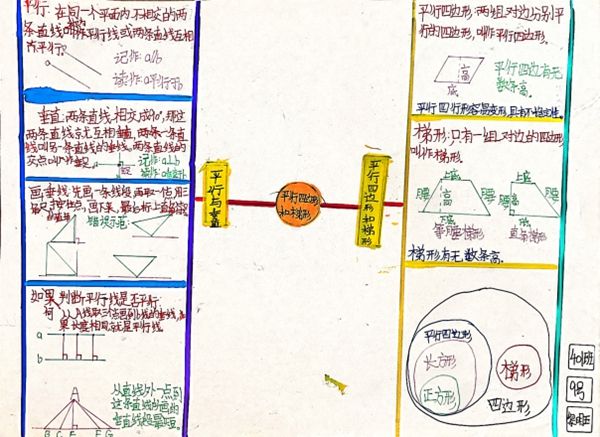 平行: 在同一个平面内不相交的两
条直线叫作平行线或两条直线互相
平行。
记作: a//b
读作: a平行于b
垂直: 两条直线相交成90°,那这
两条直线就互相垂直,
直线叫另一条直线的垂线,两条直线的
交点叫作垂足。
记作: a⊥b
画垂线: 先画一条线段,
错误示范:
如果判断平行线是否平行
果长度相同就是平行线。
a
b
从直线外一点到
这条直线所画的
垂直线段最短。
A
B C E F G
平行与垂直
平行四边形
和梯形
平行四边形和梯形
平行四边形: 两组对边分别平
行的四边形,叫作平行四边形。
高
底
平行四边形有无
数条高。
平行四行形容易变形,具有不稳定性。
梯形: 只有一组对边的四边形
叫作梯形。
上底
腰 高 腰
下底
等腰梯形
上底
腰
直角梯形
梯形有无数条高。
平行四边形
长方形
正方形
梯形
四边形
401班
9号